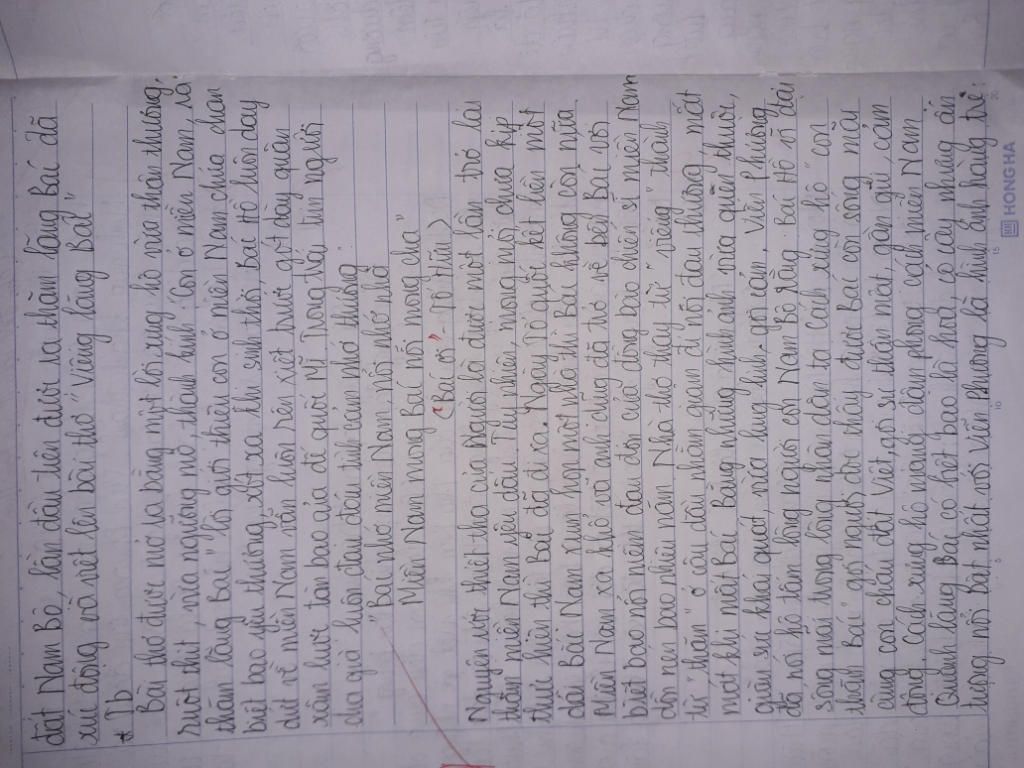 đất Nam Bộ, lần đầu tiên được ra thăm lăng Bác đã
xúc động và viết lên bài thơ "Viếng lăng Bác"
* Tb
Bài thơ được mở ra bằng một lời xưng hô vừa thân thương,
ruột thịt, vừa ngưỡng mộ, thành kính "Con ở miền Nam ra
thăm lăng Bác" lời giới thiệu con ở miền Nam chứa chan
biết bao yêu thương, xót xa. Khi sinh thời, Bác Hồ luôn day
dứt về miền Nam vẫn luôn rên xiết trước gót dày quân
xâm lược tàn bạo của đế quốc Mĩ. Trong trái tim người
cha già luôn đau đáu tình cảm nhớ thương
"Bác nhớ miền Nam nỗi nhớ nhà
Miền Nam mong Bác nỗi mong cha"
("Bác ơi" - Tố Hữu)
Nguyện ước thiết tha của Người là được một lần trở lại
thăm miền Nam yêu dấu. Tuy nhiên, mong mỏi chưa kịp
thực hiện thì Bác đã đi xa. Ngày Tổ quốc kết liền một
dải Bắc Nam sum họp một nhà thì Bác không còn nữa
Miền Nam xa khổ và anh dũng đã trở về bên Bác với
biết bao nỗi niềm đau đớn của đồng bào chiến sĩ miền Nam
dồn nén bao nhiêu năm. Nhà thơ thay từ "viếng" thành
từ "thăm" ở câu đầu nhằm giảm đi nỗi đau thương, mất
mát khi mất Bác. Bằng những hình ảnh vừa quen thuộc,
vừa khái quát, vừa lung linh, gợi cảm, Viễn Phương
đã nói hộ tấm lòng người con Nam Bộ rằng Bác Hồ vĩ đại
sống mãi trong lòng nhân dân ta. Cách xưng hô "con
thăm Bác" gợi người đọc thấy được Bác còn sống mãi
cùng con cháu đất Việt, gợi sự thân mật, gần gũi, cảm
động, cách xưng hô mang đậm phong cách miền Nam.
Quanh lăng Bác có biết bao loài hoa, cỏ cây nhưng ấn
tượng nổi bật nhất với Viễn Phương là hình ảnh hàng tre:
HONG HA
5
10
15
20